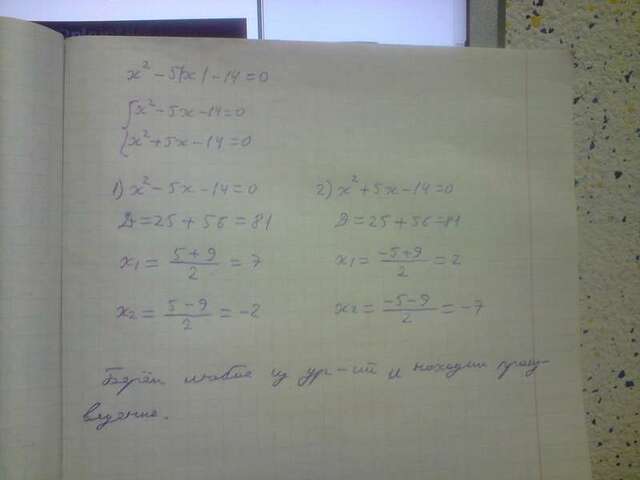 x² - 5|x| - 14 = 0
{ x² - 5x - 14 = 0
{ x² + 5x - 14 = 0
1) x² - 5x - 14 = 0
D = 25 + 56 = 81
x₁ = (5 + 9)/2 = 7
x₂ = (5 - 9)/2 = -2
2) x² + 5x - 14 = 0
D = 25 + 56 = 81
x₁ = (-5 + 9)/2 = 2
x₂ = (-5 - 9)/2 = -7
Берём любое из ур-ий и находим произ-
ведение.